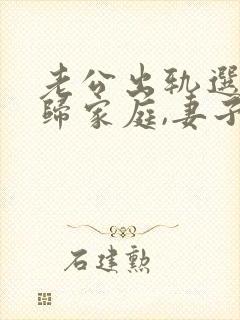 老公出轨選
歸家庭,妻子
石建勲